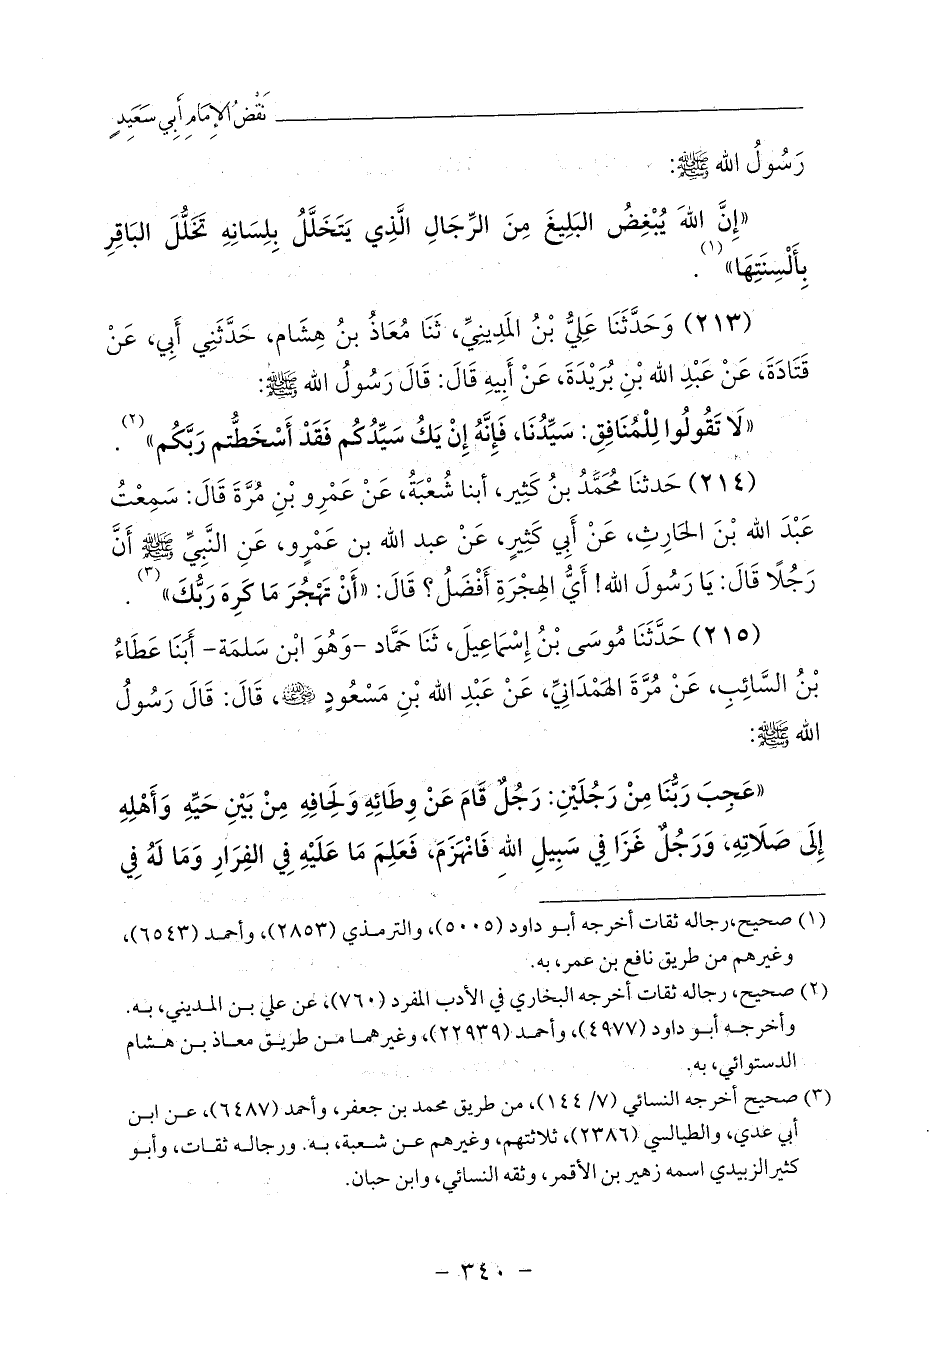 نَقْضُ الإِمَامِ أَبِي سَعِيدٍ
رَسُولُ الله ﷺ:
«إِنَّ اللهَ يُبْغِضُ البَلِيغَ مِنَ الرِّجَالِ الَّذِي يَتَخَلَّلُ بِلِسَانِهِ تَخَلُّلَ البَاقِرِ
بِأَلْسِنَتِهَا»(١).
(٢١٣) وَحَدَّثَنَا عَلِيُّ بْنُ المَدِينِيِّ، ثَنَا مُعَاذُ بنُ هِشَام، حَدَّثَنِي أَبِي، عَنْ
قَتَادَةَ، عَنْ عَبْدِ الله بْنِ بُرَيْدَةَ، عَنْ أَبِيهِ قَالَ: قَالَ رَسُولُ الله ﷺ:
«لَا تَقُولُوا لِلْمُنَافِقِ: سَيِّدُنَا، فَإِنَّهُ إِنْ يَكُ سَيِّدُكُم فَقَدْ أَسْخَطتُم رَبَّكُم»(٢).
(٢١٤) حَدثنَا مُحَمَّدُ بنُ كَثِير، أبنا شُعْبَةُ، عَنْ عَمْرِو بْنِ مُرَّةَ قَالَ: سَمِعْتُ
عَبْدَ الله بْنَ الحَارِثِ، عَنْ أَبِي كَثِيرٍ، عَنْ عبد الله بن عَمْرِو، عَنِ النَّبِيِّ ﷺ أَنَّ
رَجُلًا قَالَ: يَا رَسُولَ الله! أَيُّ الهِجْرَةِ أَفْضَلُ؟ قَالَ: «أَنْ تَهْجُرَ مَا كَرِهَ رَبُّكَ»(٣).
(٢١٥) حَدَّثَنَا مُوسَى بْنُ إِسْمَاعِيلَ، ثَنَا حَمَّاد -وَهُوَ ابْن سَلمَة- أَبنَا عَطَاءُ
بْنُ السَّائِبِ، عَنْ مُرَّةَ الهَمْدَانِيِّ، عَنْ عَبْدِ الله بْنِ مَسْعُودٍ رضي الله عنه، قَالَ: قَالَ رَسُولُ
الله ﷺ:
«عَجِبَ رَبُّنَا مِنْ رَجُلَيْنِ: رَجُلٌ قَامَ عَنْ وِطَائِهِ وَلِحَافِهِ مِنْ بَيْنِ حَيِّهِ وَأَهْلِهِ
إِلَى صَلَاتِهِ، وَرَجُلٌ غَزَا فِي سَبِيلِ اللهِ فَانْهَزَمَ، فَعَلِمَ مَا عَلَيْهِ فِي الفِرَارِ وَمَا لَهُ فِي
(١) صحيح، رجاله ثقات أخرجه أبو داود (٥٠٠٥)، والترمذي (٢٨٥٣)، وأحمد (٦٥٤٣)،
وغيرهم من طريق نافع بن عمر، به.
(٢) صحيح، رجاله ثقات أخرجه البخاري في الأدب المفرد (٧٦٠)، عن علي بن المديني، به.
وأخرجه أبو داود (٤٩٧٧)، وأحمد (٢٢٩٣٩)، وغيرهما من طريق معاذ بن هشام
الدستوائي، به.
(٣) صحيح أخرجه النسائي (٧/ ١٤٤)، من طريق محمد بن جعفر، وأحمد (٦٤٨٧)، عن ابن
أبي عدي، والطيالسي (٢٣٨٦)، ثلاثتهم، وغيرهم عن شعبة، به. ورجاله ثقات، وأبو
كثير الزبيدي اسمه زهير بن الأقمر، وثقه النسائي، وابن حبان.
- ٣٤٠ -